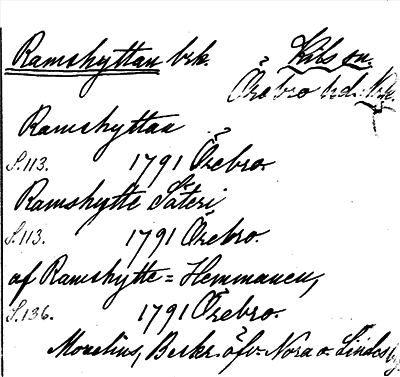 Ramshyttan brk. Kils sn.
Örebro hd.
Ramshyttan
S.113. 1791 Örebro.
Ramshytte Säteri
S.113. 1791 Örebro.
af Ramshytte = Hemmanen,
S.136. 1791 Örebro.
Morelius, Beskr. öfv. Nora o. Lindes